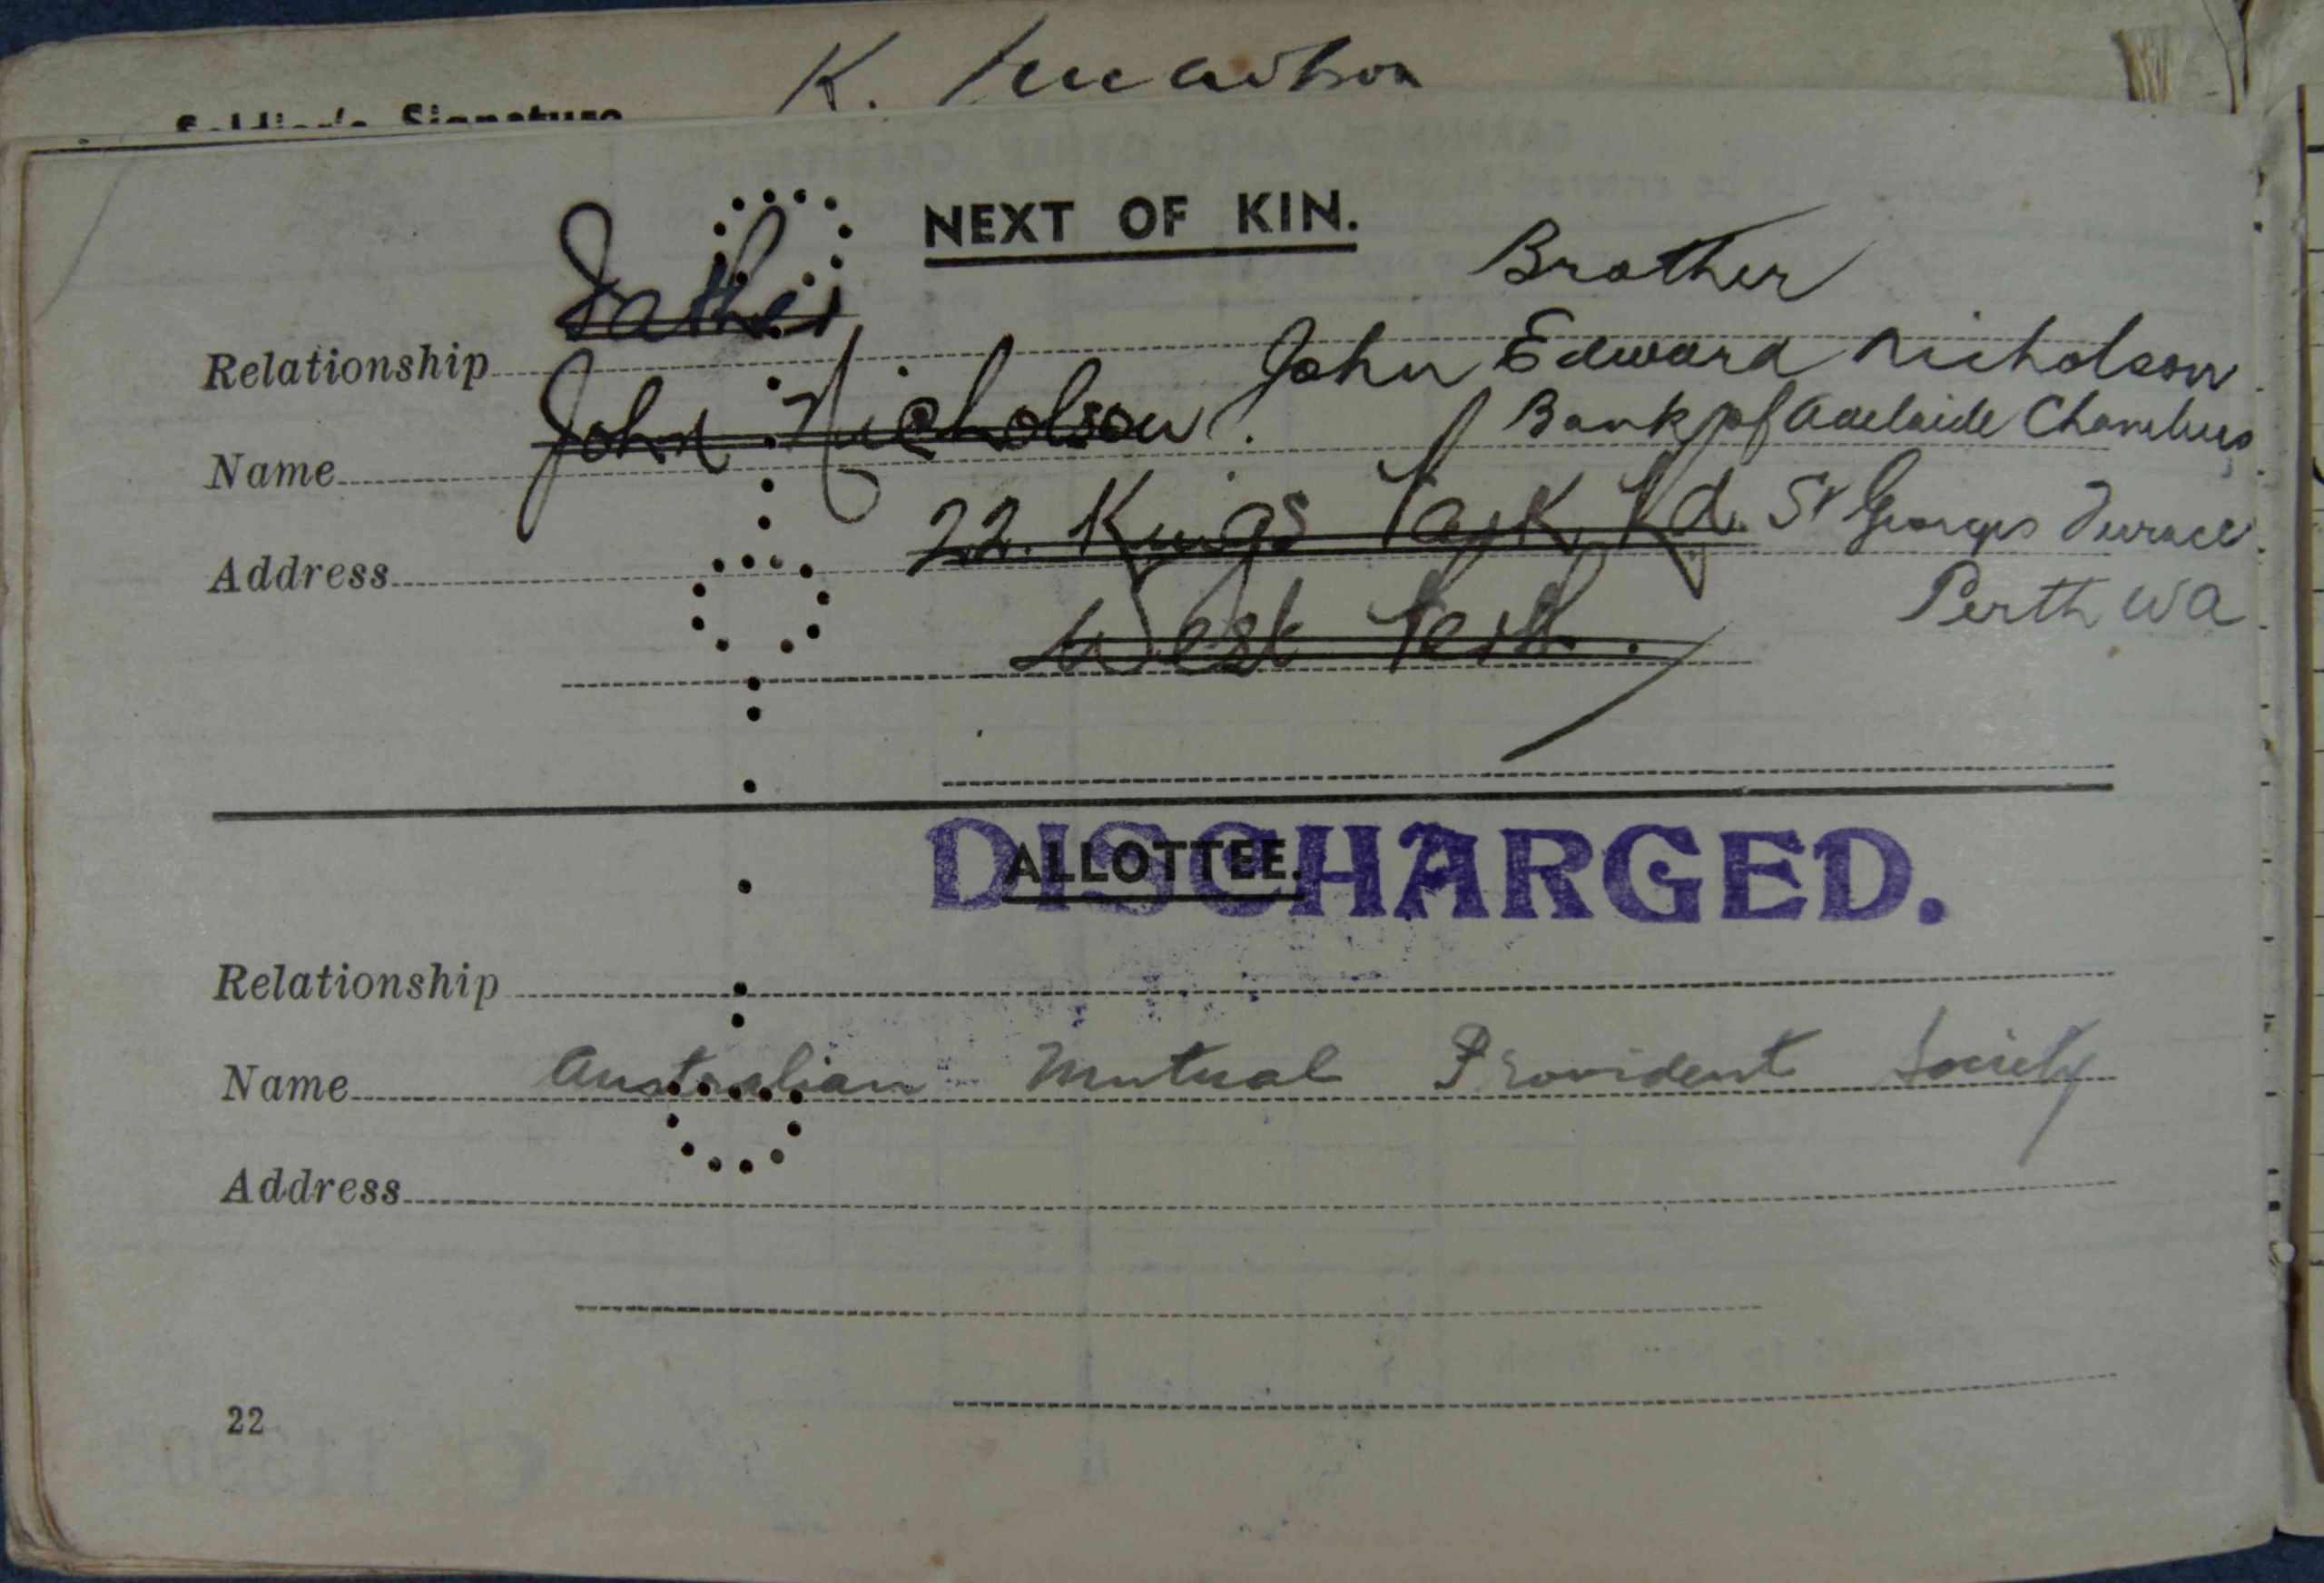 K.
Soldier's Signature
NEXT OF KIN.
Brother
Father
Relationship
John Edward Nicholson
John Nicholson.
Name
Bank of Adelaide Chambers
22. Kings Park Rd. St Georges Terrace
Address
Perth WA
West Perth.
DISCHARGED.
ALLOTTEE.
Relationship
Name Australian Mutual Provident Society
Address
22